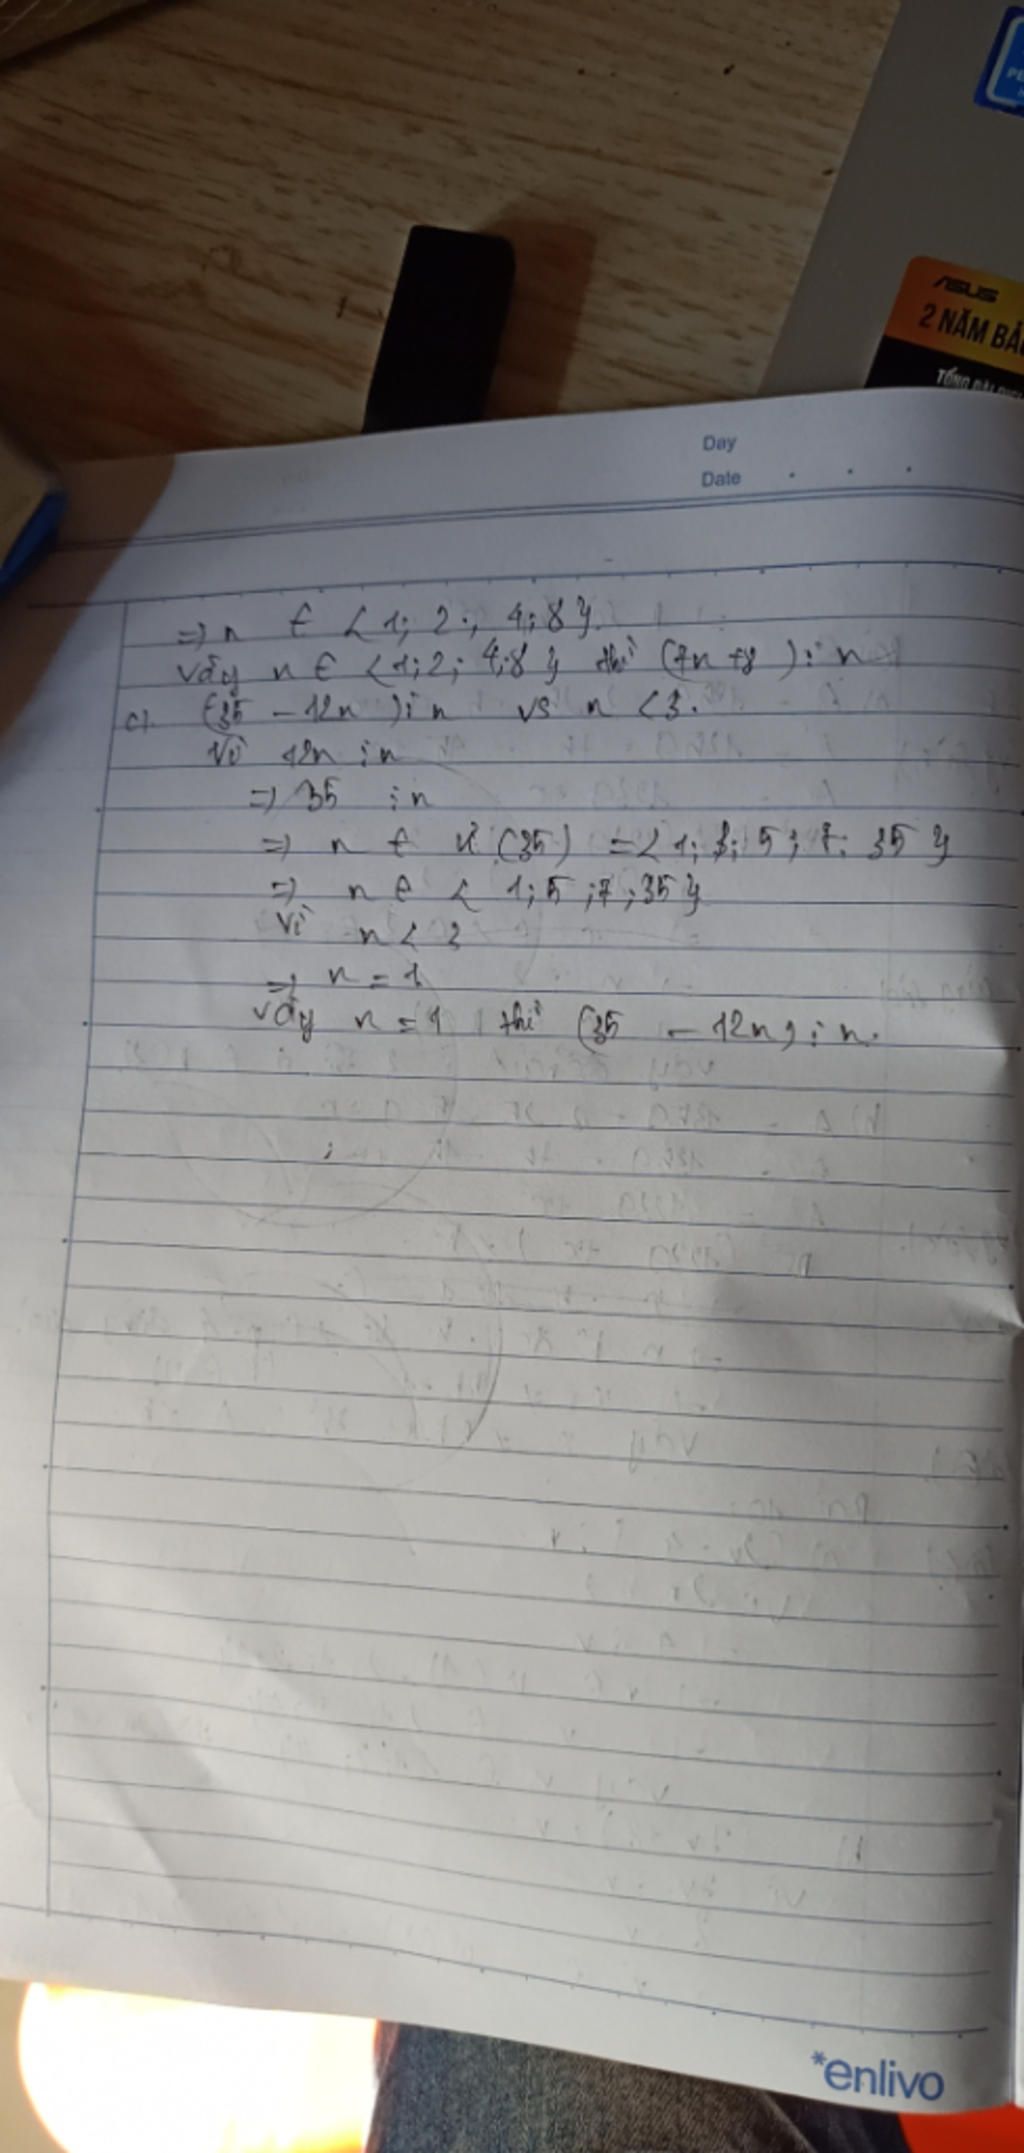 ASUS
2 NĂM BẢ
Day
Date
=> n ∈ {1; 2; 4; 8}.
vậy n ∈ {1; 2; 4; 8} thì (7n + 8) ⋮ n
c) (35 - 12n) ⋮ n vs n < 3.
Vì 12n ⋮ n
=> 35 ⋮ n
=> n ∈ Ư (35) = {1; 3; 5; 7; 35}
=> n ∈ {1; 5; 7; 35}
Vì n < 3
=> n = 1
vậy n = 1 thì (35 - 12n) ⋮ n.
*enlivo